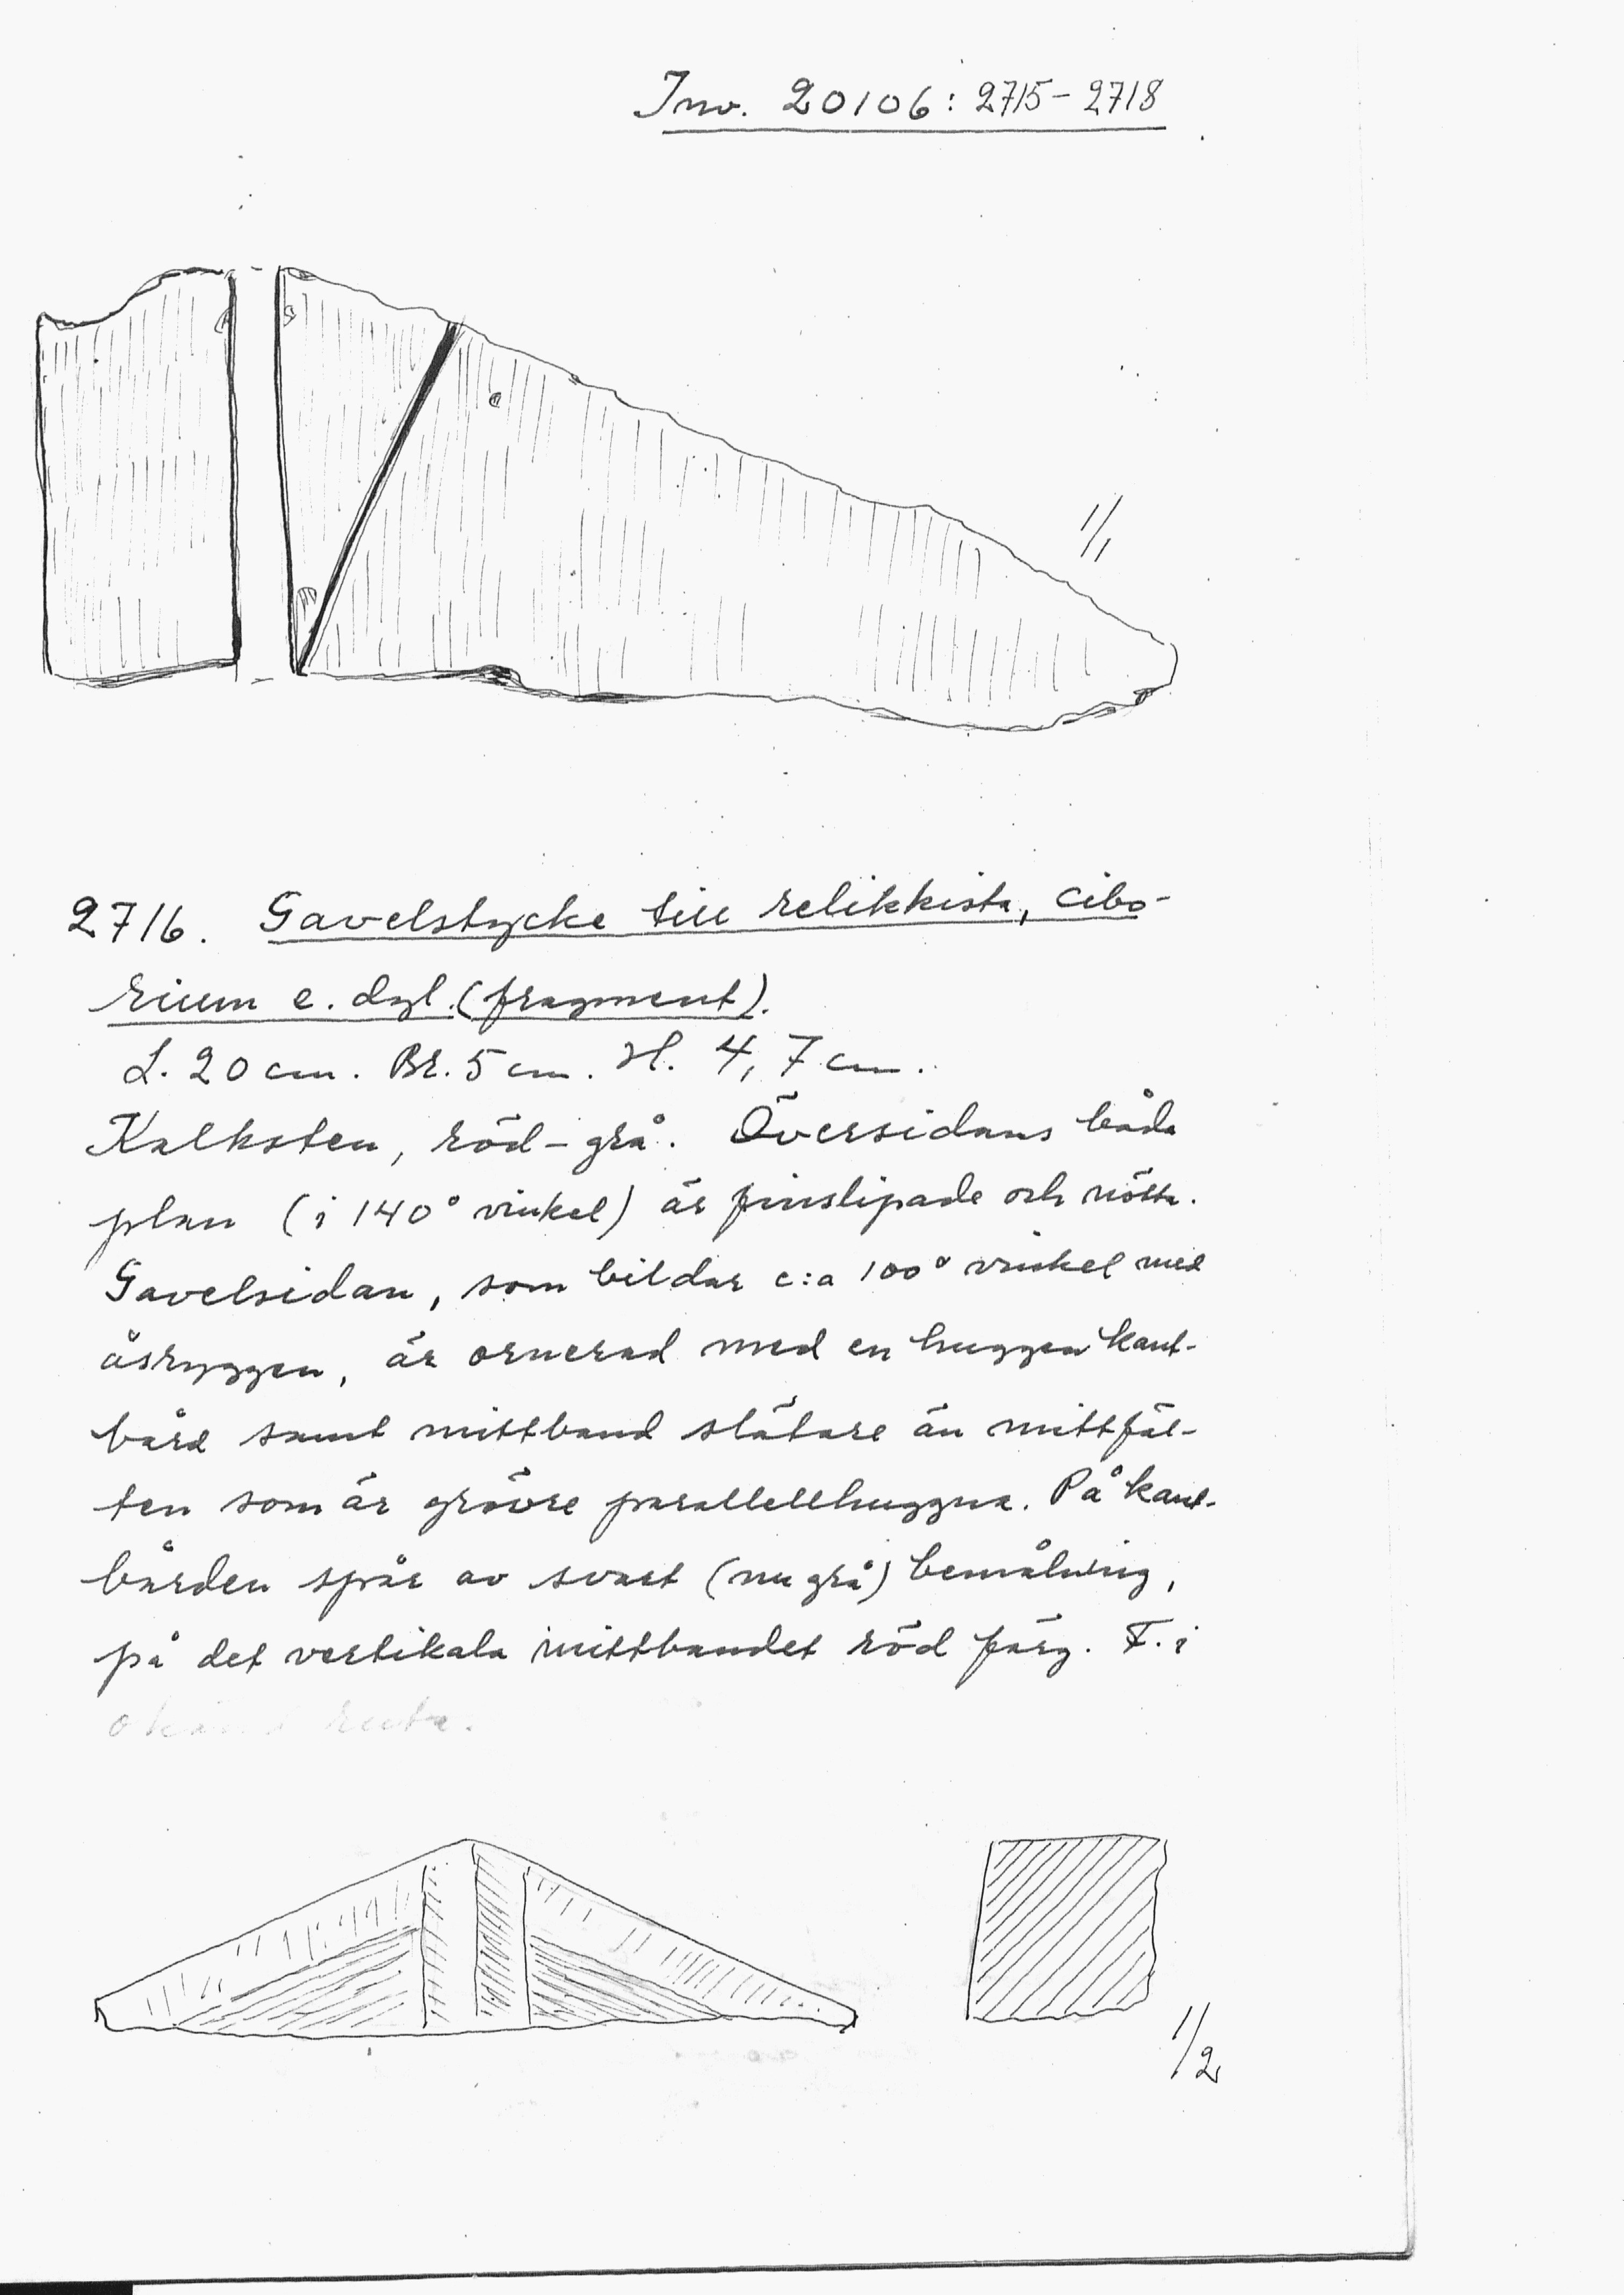 Inv. 20106: 2715-2718
1/1
2716. Gavelstycke till relikkista, cibo-
rium e. dyl. (fragment).
L. 20 cm. Br. 5 cm. H. 4,7 cm.
Kalksten, röd-grå. Översidans båda
plan (i 140° vinkel) är finslipade och nötta.
Gavelsidan, som bildar c:a 100° vinkel med
åsryggen, är ornerad med en huggen kant-
bård samt mittband slätare än mittfäl-
ten som är grövre parallellhuggna. På kant-
bården spår av svart (nu grå) bemålning,
på det vertikala mittbandet röd färg. F. i
okänd ruta.
1/2